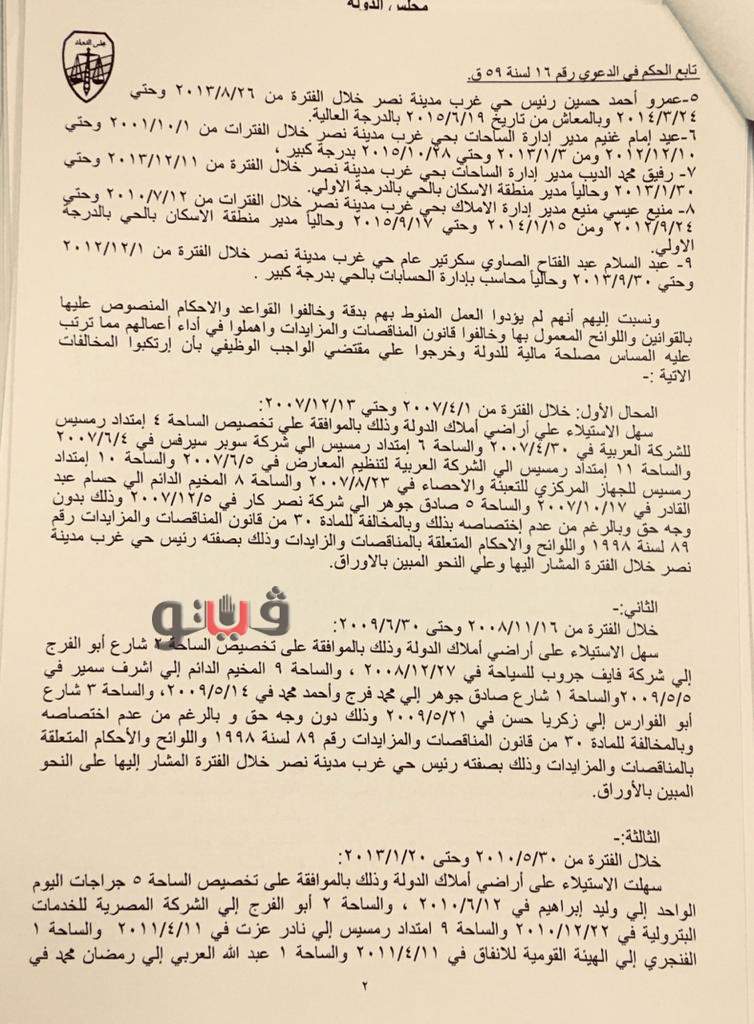 مجلس الدولة
مجلس الدولة
تابع الحكم في الدعوي رقم ١٦ لسنة ٥٩ ق.
٥-عمرو أحمد حسين رئيس حي غرب مدينة نصر خلال الفترة من ٢٠١٣/٨/٢٦ وحتي
٢٠١٤/٣/٢٤ وبالمعاش من تاريخ ٢٠١٥/٦/١٩ بالدرجة العالية.
٦-عيد إمام غنيم مدير إدارة الساحات بحي غرب مدينة نصر خلال الفترات من ٢٠٠١/١٠/١ وحتي
٢٠١٢/١٢/١٠ ومن ٢٠١٣/١/٣ وحتي ٢٠١٥/١٠/٢٨ بدرجة كبير ،
٧- رفيق محمد الديب مدير إدارة الساحات بحي غرب مدينة نصر خلال الفترة من ٢٠١٣/١٢/١١ وحتي
٢٠١٣/١/٣٠ وحالياً مدير منطقة الاسكان بالحي بالدرجة الاولي.
٨- منيع عيسي منيع مدير إدارة الاملاك بحي غرب مدينة نصر خلال الفترات من ٢٠١٠/٧/١٢ وحتي
٢٠١٢/٩/٢٤ ومن ٢٠١٤/١/١٥ وحتي ٢٠١٥/٩/١٧ وحالياً مدير منطقة الاسكان بالحي بالدرجة
الاولي.
٩- عبد السلام عبد الفتاح الصاوي سكرتير عام حي غرب مدينة نصر خلال الفترة من ٢٠١٢/١٢/١
وحتي ٢٠١٣/٩/٣٠ وحالياً محاسب بإدارة الحسابات بالحي بدرجة كبير .
ونسبت إليهم أنهم لم يؤدوا العمل المنوط بهم بدقة وخالفوا القواعد والاحكام المنصوص عليها
بالقوانين واللوائح المعمول بها وخالفوا قانون المناقصات والمزايدات واهملوا في أداء أعمالهم مما ترتب
عليه المساس مصلحة مالية للدولة وخرجوا علي مقتضي الواجب الوظيفي بأن إرتكبوا المخالفات
الاتية :-
المحال الأول: خلال الفترة من ٢٠٠٧/٤/١ وحتي ٢٠٠٧/١٢/١٣:
سهل الاستيلاء علي أراضي أملاك الدولة وذلك بالموافقة علي تخصيص الساحة ٤ إمتداد رمسيس
للشركة العربية في ٢٠٠٧/٤/٣٠ والساحة ٦ إمتداد رمسيس الي شركة سوبر سيرفس في ٢٠٠٧/٦/٤
والساحة ١١ إمتداد رمسيس الي الشركة العربية لتنظيم المعارض في ٢٠٠٧/٦/٥ والساحة ١٠ إمتداد
رمسيس للجهاز المركزي للتعبئة والاحصاء في ٢٠٠٧/٨/٢٣ والساحة ٨ المخيم الدائم الي حسام عبد
القادر في ٢٠٠٧/١٠/١٧ والساحة ٥ صادق جوهر الي شركة نصر كار في ٢٠٠٧/١٢/٥ وذلك بدون
وجه حق وبالرغم من عدم إختصاصه بذلك وبالمخالفة للمادة ٣٠ من قانون المناقصات والمزايدات رقم
٨٩ لسنة ١٩٩٨ واللوائح والاحكام المتعلقة بالمناقصات والزايدات وذلك بصفته رئيس حي غرب مدينة
نصر خلال الفترة المشار اليها وعلي النحو المبين بالاوراق.
ڤيتو
الثاني:-
خلال الفترة من ٢٠٠٨/١١/١٦ وحتى ٢٠٠٩/٦/٣٠:
سهل الاستيلاء على أراضي أملاك الدولة وذلك بالموافقة على تخصيص الساحة ٢ شارع أبو الفرج
إلي شركة فايف جروب للسياحة في ٢٠٠٨/١٢/٢٧ ، والساحة ٩ المخيم الدائم إلي اشرف سمير في
٢٠٠٩/٥/٥والساحة ١ شارع صادق جوهر إلي محمد فرج وأحمد محمد في ٢٠٠٩/٥/١٤، والساحة ٣ شارع
أبو الفوارس إلي زكريا حسن في ٢٠٠٩/٥/٢١ وذلك دون وجه حق و بالرغم من عدم اختصاصه
وبالمخالفة للمادة ٣٠ من قانون المناقصات والمزايدات رقم ٨٩ لسنة ١٩٩٨ واللوائح والأحكام المتعلقة
بالمناقصات والمزايدات وذلك بصفته رئيس حي غرب مدينة نصر خلال الفترة المشار إليها على النحو
المبين بالأوراق.
الثالثة:-
خلال الفترة من ٢٠١٠/٥/٣٠ وحتى ٢٠١٣/١/٢٠:
سهلت الاستيلاء على أراضي أملاك الدولة وذلك بالموافقة على تخصيص الساحة ٥ جراجات اليوم
الواحد إلي وليد إبراهيم في ٢٠١٠/٦/١٢ ، والساحة ٢ أبو الفرج إلي الشركة المصرية للخدمات
البترولية في ٢٠١٠/١٢/٢٢ والساحة ٩ امتداد رمسيس إلي نادر عزت في ٢٠١١/٤/١١ والساحة ١
الفنجري إلي الهيئة القومية للانفاق في ٢٠١١/٤/١١ والساحة ١ عبد الله العربي إلي رمضان محمد في
٢